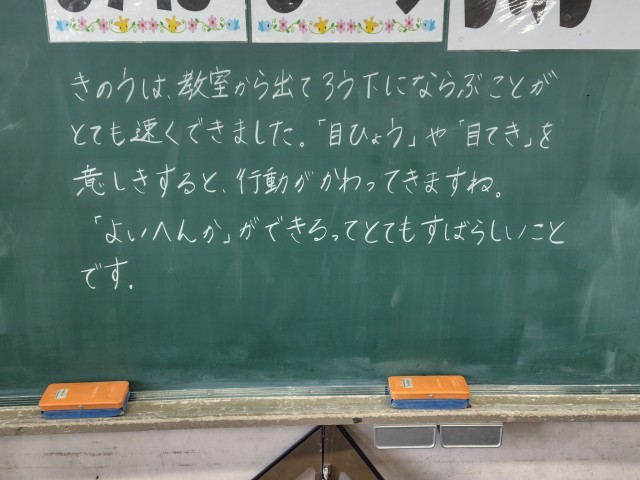 きのうは、教室から出てろう下にならぶことが
とても速くできました。「目ひょう」や「目てき」を
意しきすると、行動がかわってきますね。
「よいへんか」ができるってとてもすばらしいこと
です.